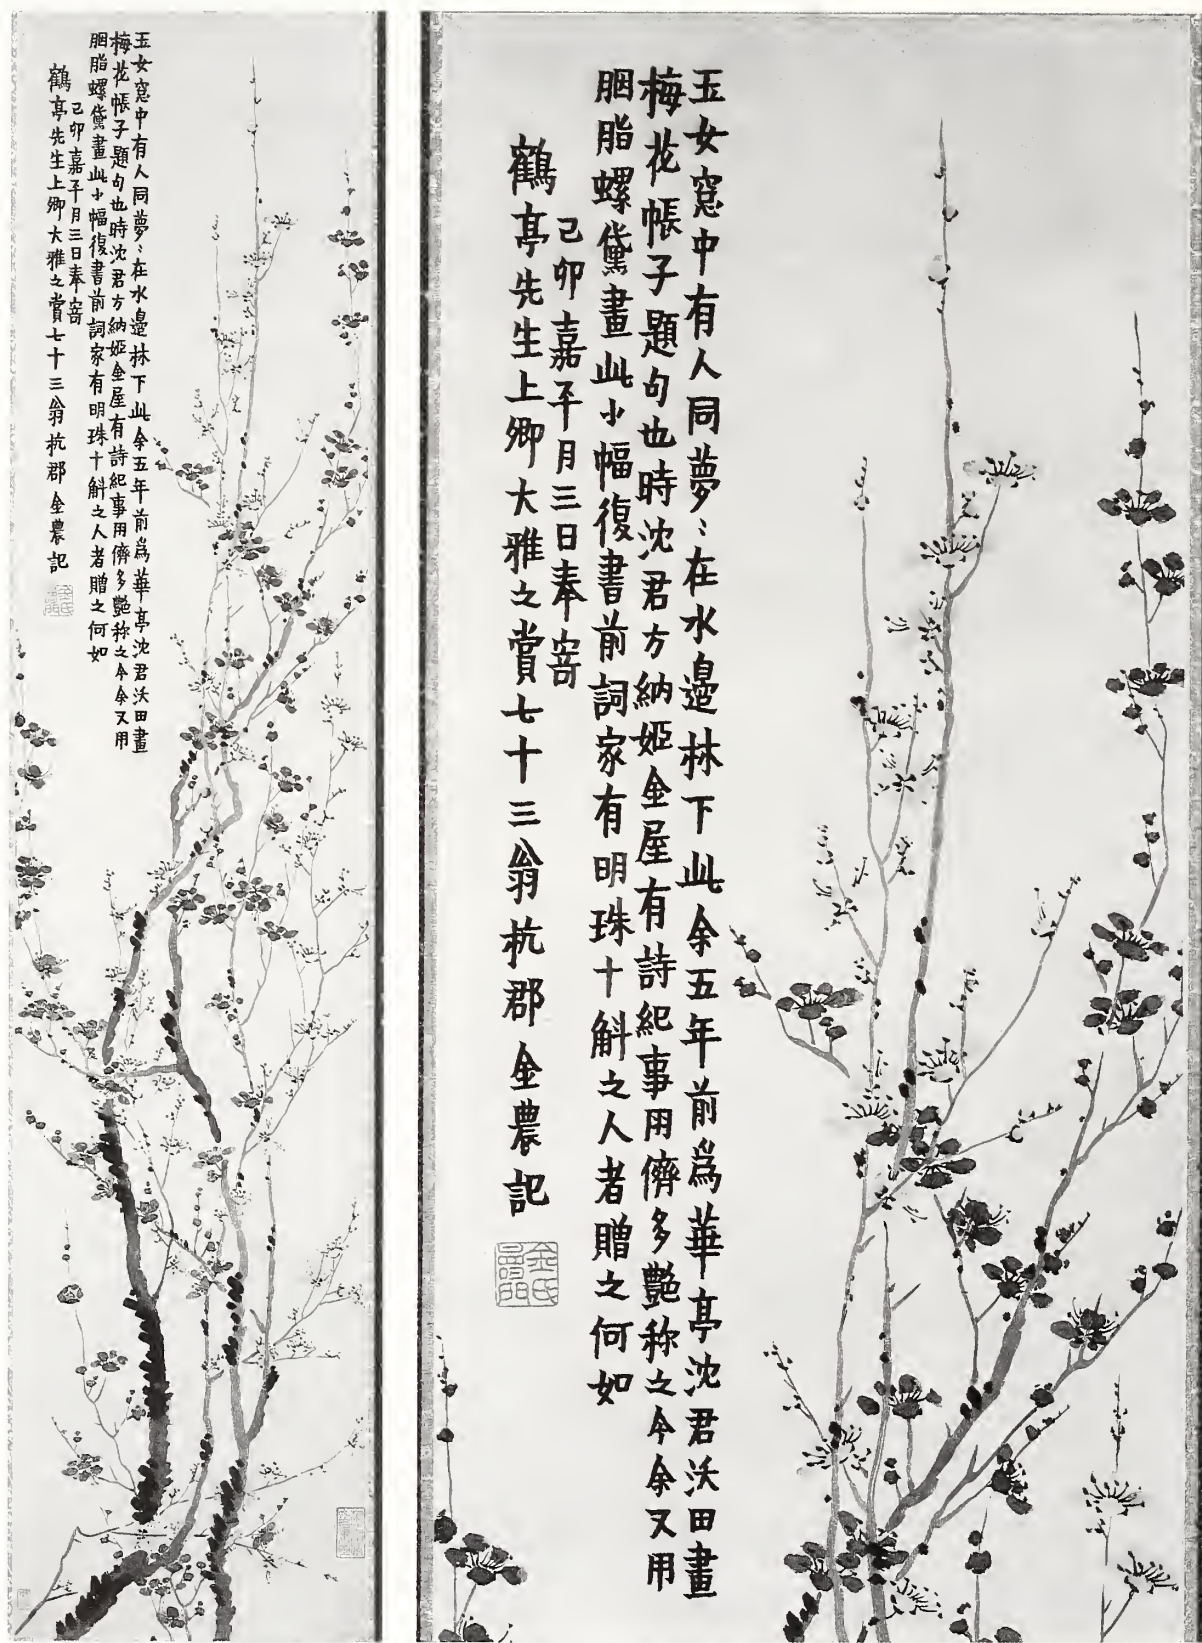 玉女窓中有人同夢〻在水邊林下此余五年前爲華亭沈君沃田畫
梅花帳子題句也時沈君方納姬金屋有詩紀事用儕多艷称之今余又用
胭脂螺黛畫此小幅復書前詞家有明珠十斛之人者贈之何如
己卯嘉平月三日奉寄
鶴亭先生上卿大雅之賞七十三翁杭郡金農記
玉女窓中有人同夢〻在水邊林下此余五年前爲華亭沈君沃田畫
梅花帳子題句也時沈君方納姬金屋有詩紀事用儕多艷称之今余又用
胭脂螺黛畫此小幅復書前詞家有明珠十斛之人者贈之何如
己卯嘉平月三日奉寄
鶴亭先生上卿大雅之賞七十三翁杭郡金農記
金氏壽門